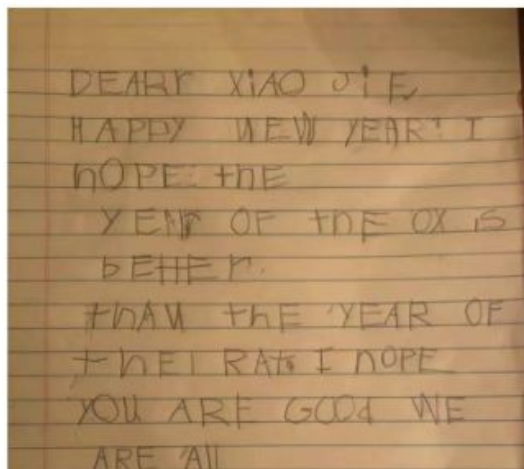 DEARr XiAO JiE
HAPPY NEW YEAR! I
hOPE the
YEAr OF thE OX iS
bEttEr.
thAN thE YEAR OF
thE RAt. I hOPE
YOU ARE GOOd WE
ARE All